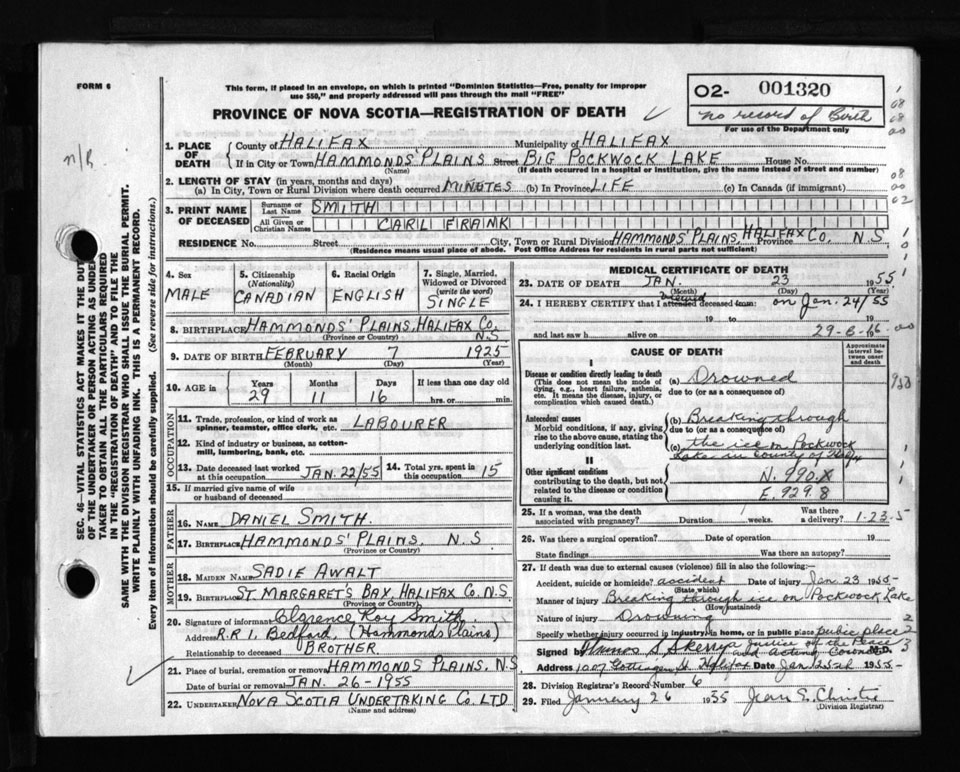 FORM 6
This form, if placed in an envelope, on which is printed "Dominion Statistics—Free, penalty for improper
use $50," and properly addressed will pass through the mail "FREE"
PROVINCE OF NOVA SCOTIA—REGISTRATION OF DEATH
02- 001320
no record of Birth
For use of the Department only
n/R
SEC. 46—VITAL STATISTICS ACT MAKES IT THE DUTY
OF THE UNDERTAKER OR PERSON ACTING AS UNDER-
TAKER TO OBTAIN ALL THE PARTICULARS REQUIRED
IN THE "REGISTRATION OF DEATH" AND TO FILE THE
SAME WITH THE DIVISION REGISTRAR WHO SHALL ISSUE THE BURIAL PERMIT.
WRITE PLAINLY WITH UNFADING INK. THIS IS A PERMANENT RECORD.
Every item of information should be carefully supplied. (See reverse side for instructions.)
1. PLACE OF DEATH
County of HALIFAX Municipality of HALIFAX
If in City or Town HAMMONDS' PLAINS Street BIG POCKWOCK LAKE House No.
(Name) (If death occurred in a hospital or institution, give the name instead of street and number)
2. LENGTH OF STAY (in years, months and days)
(a) In City, Town or Rural Division where death occurred MINUTES (b) In Province LIFE (c) In Canada (if immigrant)
3. PRINT NAME OF DECEASED
Surname or Last Name SMITH
All Given or Christian Names CARL FRANK
RESIDENCE No. Street City, Town or Rural Division HAMMONDS' PLAINS, HALIFAX CO. Province N.S
(Residence means usual place of abode. Post Office Address for residents in rural parts not sufficient)
4. Sex
MALE
5. Citizenship (Nationality)
CANADIAN
6. Racial Origin
ENGLISH
7. Single, Married, Widowed or Divorced (write the word)
SINGLE
8. BIRTHPLACE HAMMONDS' PLAINS, HALIFAX CO. N.S.
(Province or Country)
9. DATE OF BIRTH FEBRUARY 7 1925
(Month) (Day) (Year)
10. AGE in
Years Months Days If less than one day old
29 11 16 hrs. or min.
OCCUPATION
11. Trade, profession, or kind of work as
spinner, teamster, office clerk, etc. LABOURER
12. Kind of industry or business, as cotton-
mill, lumbering, bank, etc.
13. Date deceased last worked
at this occupation JAN. 22/55
14. Total yrs. spent in
this occupation 15
15. If married give name of wife
or husband of deceased
FATHER
16. NAME DANIEL SMITH.
17. BIRTHPLACE HAMMONDS' PLAINS, N.S
(Province or Country)
MOTHER
18. MAIDEN NAME SADIE AWALT
19. BIRTHPLACE ST. MARGARET'S BAY, HALIFAX CO. N.S.
(Province or Country)
20. Signature of informant Clarence Roy Smith
Address R.R 1. Bedford, (Hammonds Plains)
Relationship to deceased BROTHER
21. Place of burial, cremation or removal HAMMONDS PLAINS, N.S
Date of burial or removal JAN. 26-1955
22. UNDERTAKER NOVA SCOTIA UNDERTAKING CO. LTD
(Name and address)
MEDICAL CERTIFICATE OF DEATH
23. DATE OF DEATH JAN. 23 1955
(Month) (Day) (Year)
24. I HEREBY CERTIFY that I attended deceased from: viewed on Jan. 24/55
19 to 19
and last saw h alive on 19
29-B-16
CAUSE OF DEATH
Approximate interval between onset and death
I
Disease or condition directly leading to death
(This does not mean the mode of
dying, e.g., heart failure, asthenia,
etc. It means the disease, injury, or
complication which caused death.)
(a) Drowned
due to (or as a consequence of)
Antecedent causes
Morbid conditions, if any, giving
rise to the above cause, stating the
underlying condition last.
(b) Breaking through
due to (or as a consequence of)
(c) the ice on Pockwock
Lake in County of Halifax
II
Other significant conditions
contributing to the death, but not
related to the disease or condition
causing it.
N. 990.X
E. 929.8
25. If a woman, was the death
associated with pregnancy? Duration weeks. Was there
a delivery? 1-23-5
26. Was there a surgical operation? Date of operation 19
State findings Was there an autopsy?
27. If death was due to external causes (violence) fill in also the following:
Accident, suicide or homicide? accident Date of injury Jan. 23 1955-
(State which)
Manner of injury Breaking through ice on Pockwock Lake
(How sustained)
Nature of injury Drowning
Specify whether injury occurred in industry, in home, or in public place public place
Signed Justice of the Peace
and Acting Coroner M.D.
Address Gottingen St. Halifax Date Jan 25th 1955-
28. Division Registrar's Record Number 6
29. Filed January 26 1935 Jean E. Christie
(Division Registrar)